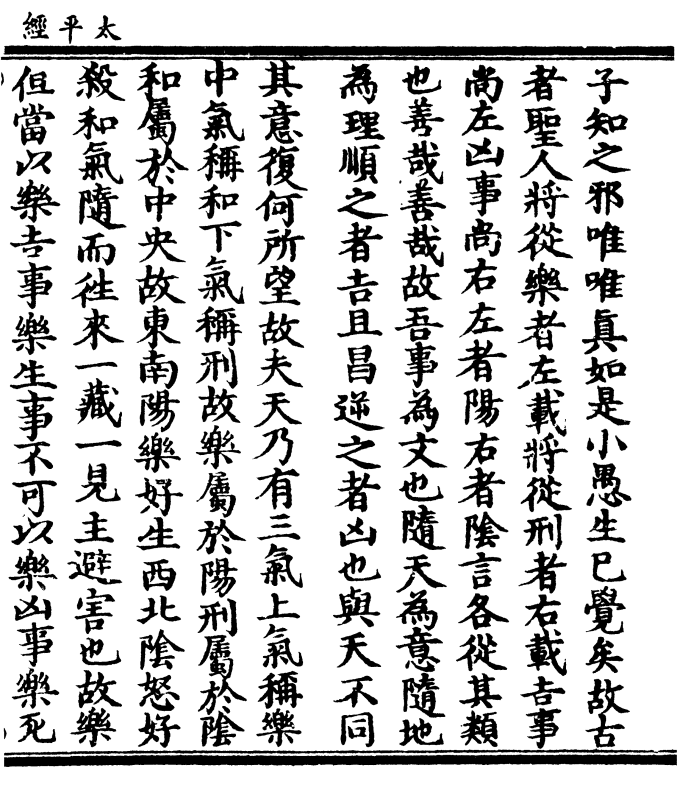 太平經
子知之邪唯唯眞如是小愚生已覺矣故古
者聖人將從樂者左載將從刑者右載吉事
尚左凶事尚右左者陽右者陰言各從其類
也善哉善哉故吾事為文也隨天為意隨地
為理順之者吉且昌逆之者凶也與天不同
其意復何所望故夫天乃有三氣上氣稱樂
中氣稱和下氣稱刑故樂屬於陽刑屬於陰
和屬於中央故東南陽樂好生西北陰怒好
殺和氣隨而徃來一藏一見主避害也故樂
但當以樂吉事樂生事不可以樂凶事樂死